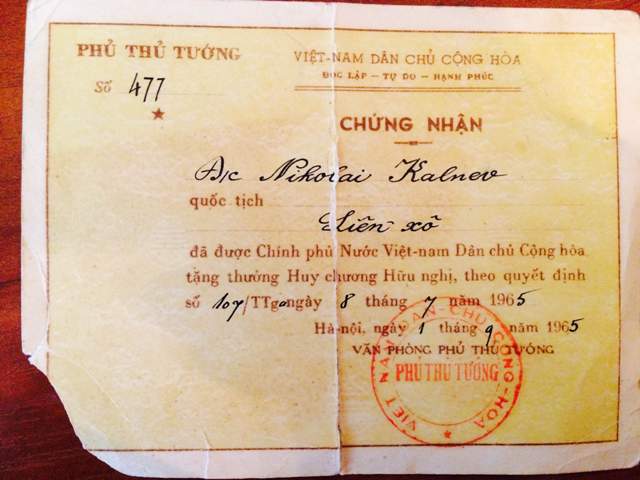 PHỦ THỦ TƯỚNG
Số 477
VIỆT-NAM DÂN CHỦ CỘNG HÒA
ĐỘC LẬP - TỰ DO - HẠNH PHÚC
CHỨNG NHẬN
Đ/c Nikolai Kalnev
quốc tịch
Liên xô
đã được Chính phủ Nước Việt-nam Dân chủ Cộng hòa
tặng thưởng Huy chương Hữu nghị, theo quyết định
số 107/TTg ngày 8 tháng 7 năm 1965
Hà-nội, ngày 1 tháng 9 năm 1965
VĂN PHÒNG PHỦ THỦ TƯỚNG
VIỆT NAM DÂN-CHỦ CỘNG-HÒA
PHỦ THỦ TƯỚNG